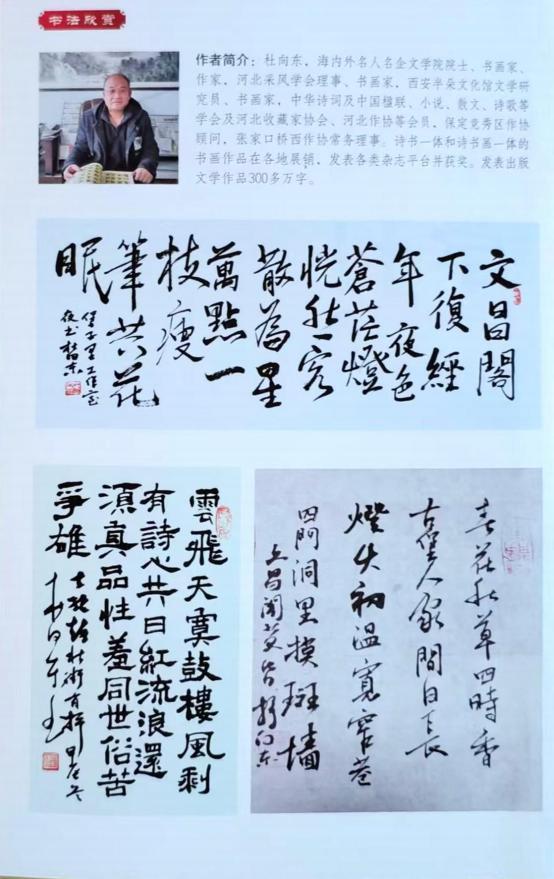 书法欣赏
作者简介：杜向东，海内外名人名企文学院院士、书画家、
作家，河北采风学会理事、书画家，西安半朵文化馆文学研
究员、书画家，中华诗词及中国楹联、小说、散文、诗歌等
学会及河北收藏家协会、河北作协等会员，保定竞秀区作协
顾问，张家口桥西作协常务理事。诗书一体和诗书画一体的
书画作品在各地展销，发表各类杂志平台并获奖。发表出版
文学作品300多万字。
文昌閣
下復經
年夜色
蒼茫燈
恍然一客
散為星
萬點一
枝瘦
筆共花
眠
工作室
雲飛天寞鼓樓風剩
有詩心共日紅流浪還
湏真品性羞同世俗苦
爭雄
春花秋草四時香
古堡人家閒日長
燈火初温寬窄巷
四門洞里摸斑墻
文昌閣